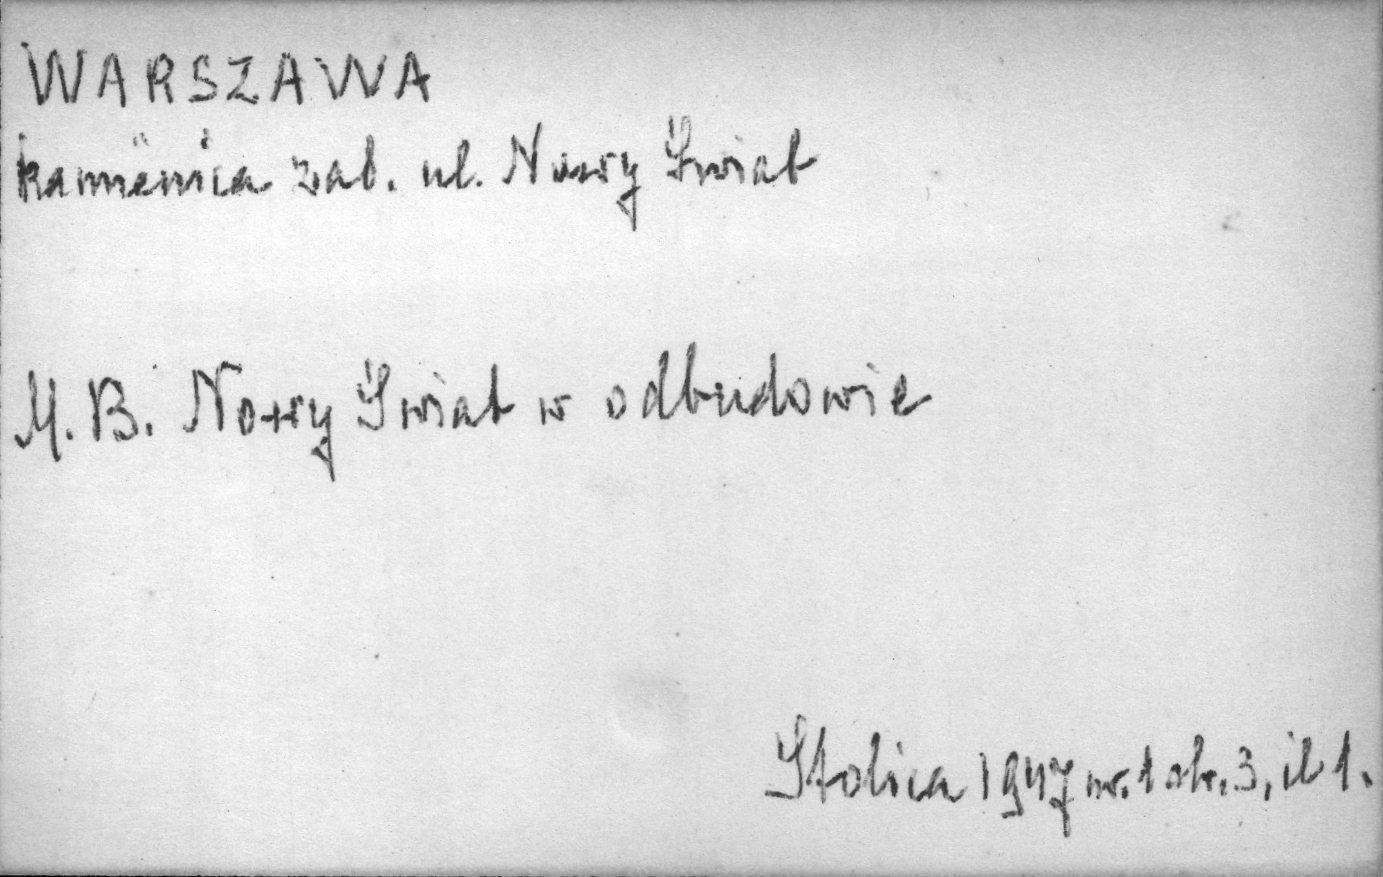 WARSZAWA
kamienica zab. ul. Nowy Świat
M. B. Nowy Świat w odbudowie
Stolica 1947 nr. 1 str. 3, il 1.